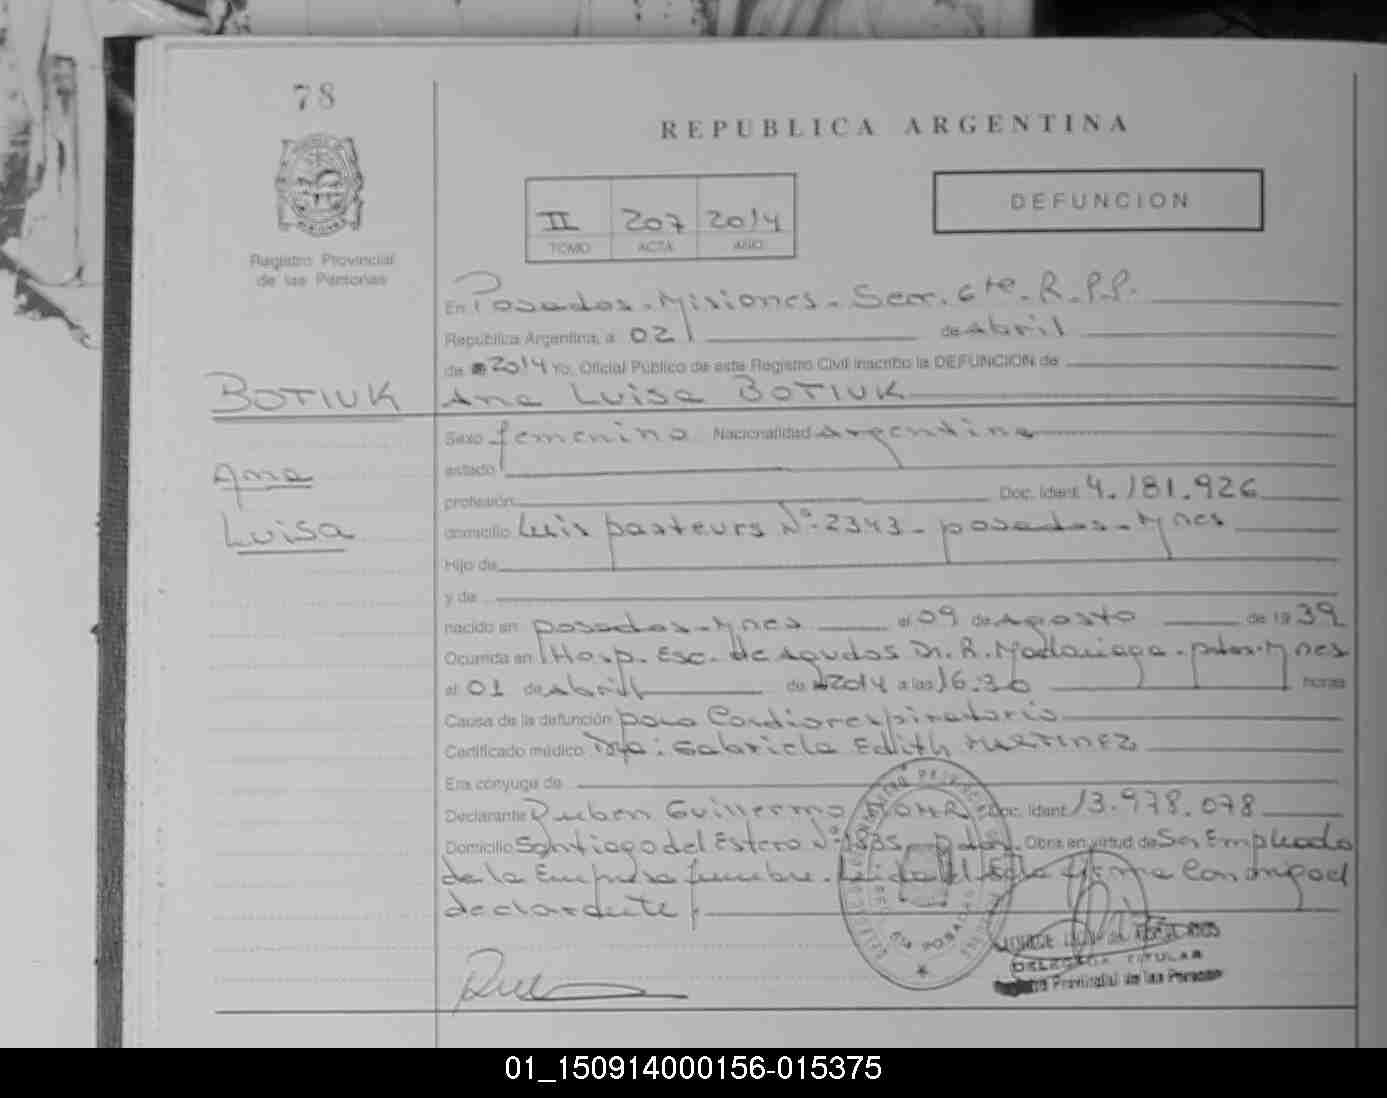 78
REPUBLICA ARGENTINA
II 207 2014
TOMO ACTA AÑO
DEFUNCION
Registro Provincial
de las Personas
En Posadas - Misiones - Secc. 6ta - R.P.P.
República Argentina, a 02 de Abril
de 2014 Yo, Oficial Público de este Registro Civil inscribo la DEFUNCION de
BOTIUK
Ana Luisa BOTIUK
Ana
Luisa
Sexo femenino Nacionalidad Argentina
estado
profesión Doc. Ident. 4.181.926
domicilio Luis pasteurs Nº 2343 - posadas - Mnes
Hijo de
y de
nacido en posadas - Mnes el 09 de Agosto de 1939
Ocurrida en Hosp. Esc. de Agudos Dr. R. Madariaga - pdas - Mnes
el 01 de Abril de 2014 a las 16:30 horas
Causa de la defunción paro Cardiorespiratorio
Certificado médico Dra: Gabriela Edith MARTINEZ
Era cónyuge de
Declarante Ruben Guillermo Doc. Ident. 13.978.078
Domicilio Santiago del Estero Nº 1535 - pdas. Obra en virtud de Ser Empleado
de la Empresa funebre. Leida el Acta firma Conmigo el
declarante
DELEGADA TITULAR
Provincial de las Personas
01_150914000156-015375